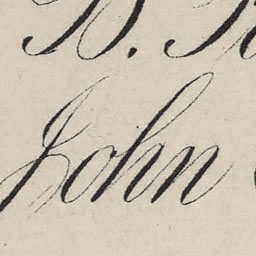 B.
John